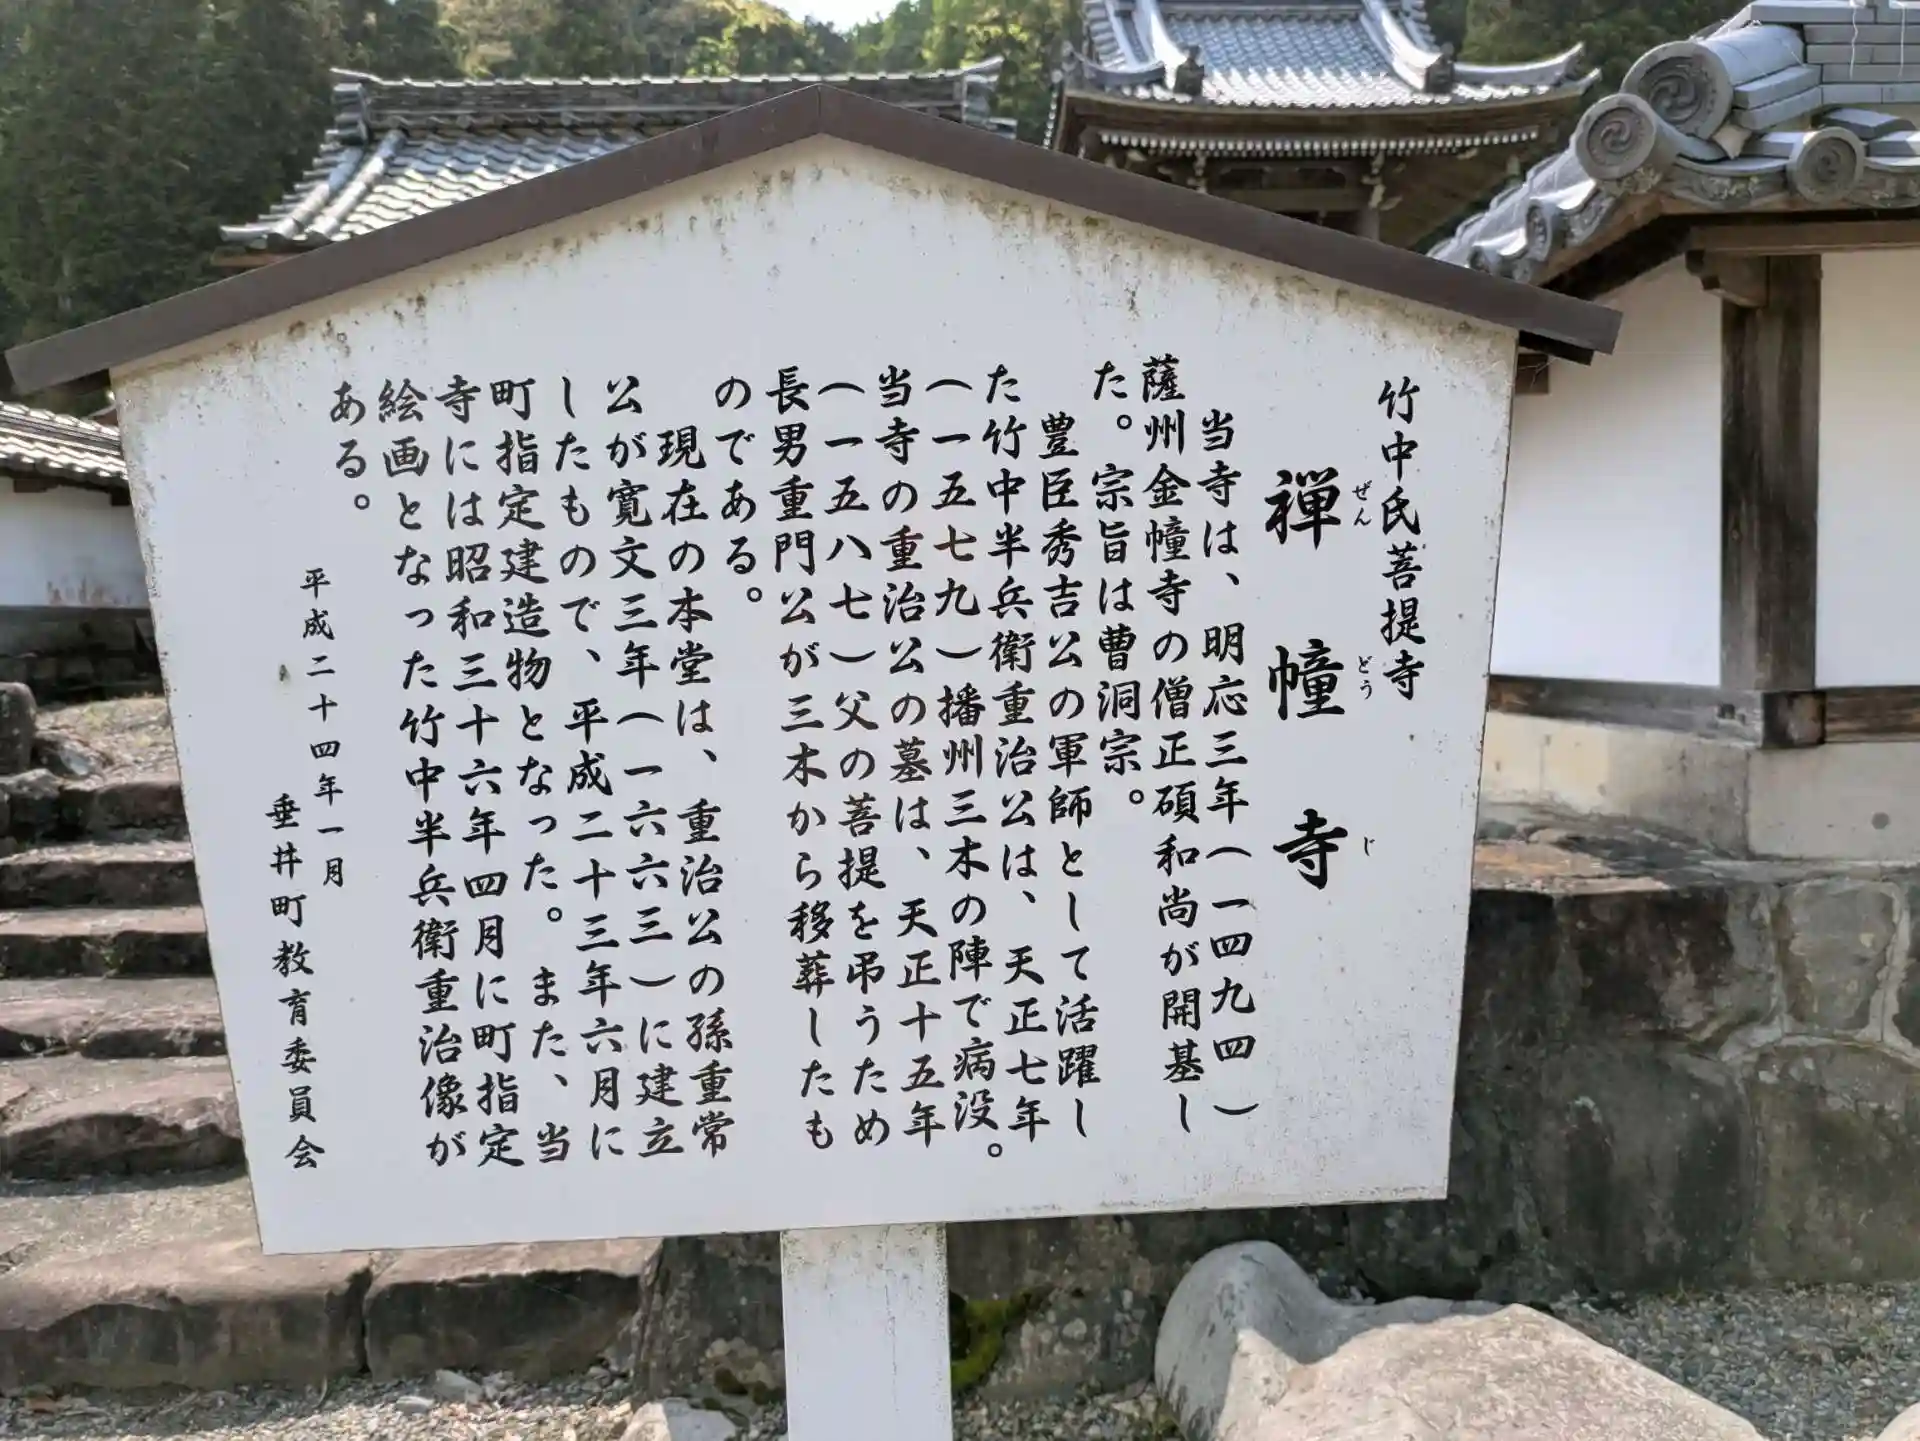 竹中氏菩提寺
禅幢寺
ぜんどうじ
当寺は、明応三年(一四九四)
薩州金幢寺の僧正碩和尚が開基し
た。宗旨は曹洞宗。
豊臣秀吉公の軍師として活躍し
た竹中半兵衛重治公は、天正七年
(一五七九)播州三木の陣で病没。
当寺の重治公の墓は、天正十五年
(一五八七)父の菩提を弔うため
長男重門公が三木から移葬したも
のである。
現在の本堂は、重治公の孫重常
公が寛文三年(一六六三)に建立
したもので、平成二十三年六月に
町指定建造物となった。また、当
寺には昭和三十六年四月に町指定
絵画となった竹中半兵衛重治像が
ある。
平成二十四年一月
垂井町教育委員会